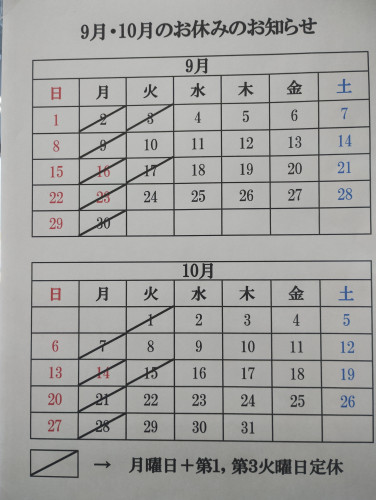 9月・10月のお休みのお知らせ
9月
日 月 火 水 木 金 土
1 2 3 4 5 6 7
8 9 10 11 12 13 14
15 16 17 18 19 20 21
22 23 24 25 26 27 28
29 30
10月
日 月 火 水 木 金 土
1 2 3 4 5
6 7 8 9 10 11 12
13 14 15 16 17 18 19
20 21 22 23 24 25 26
27 28 29 30 31
→ 月曜日＋第1，第3火曜日定休